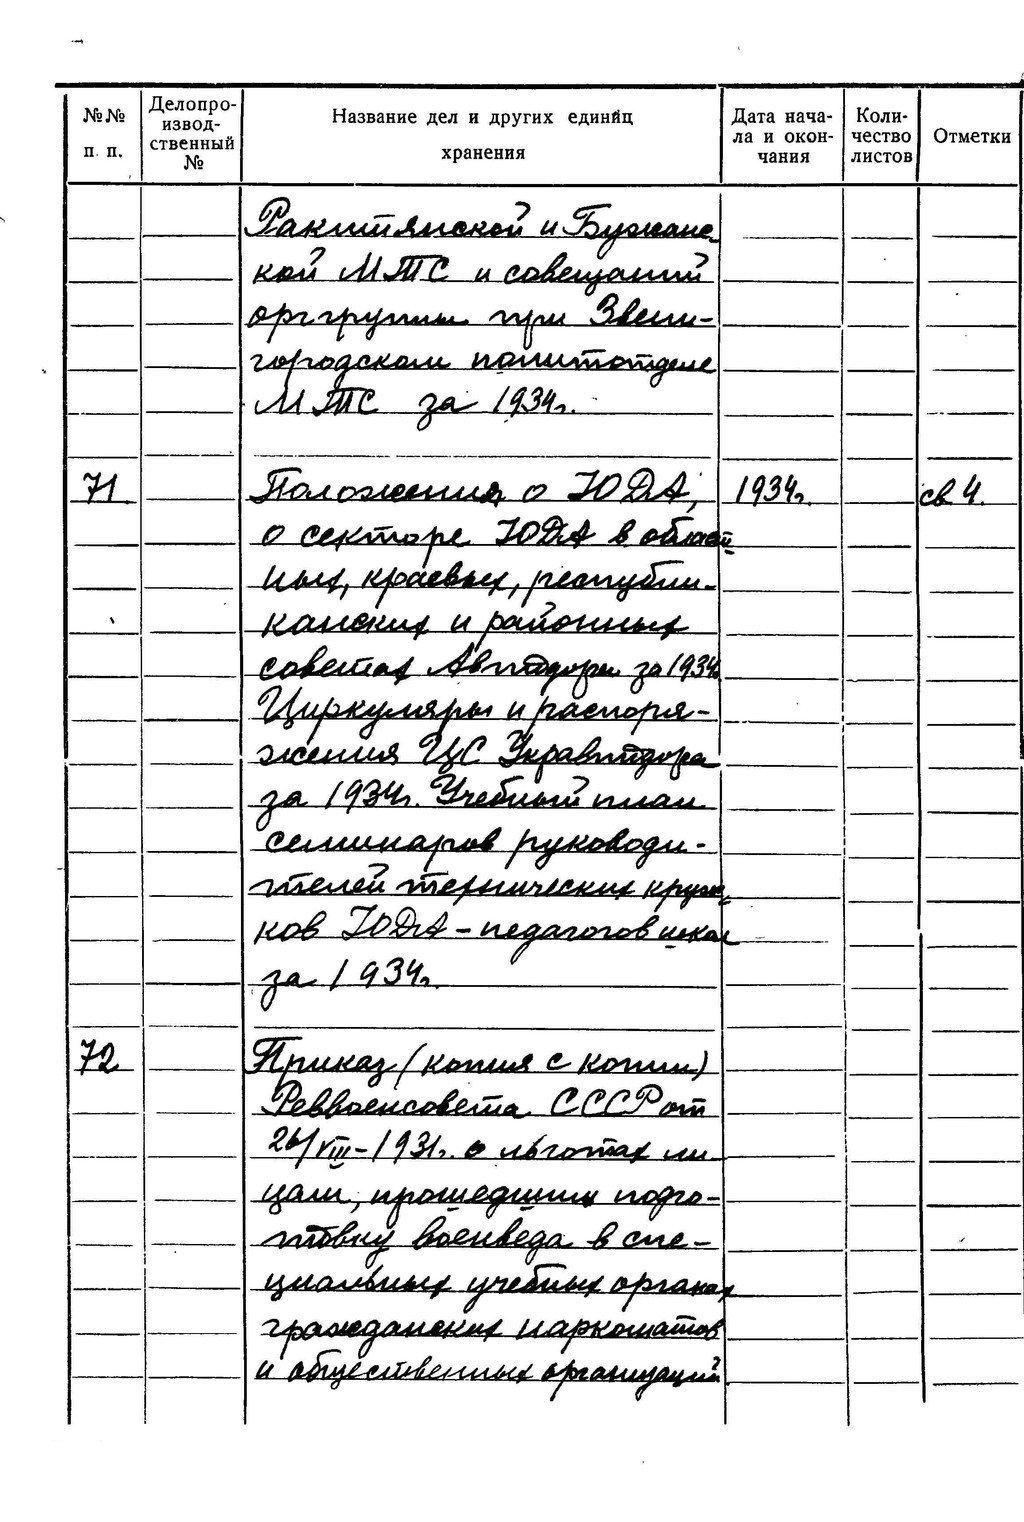 №№ п. п. Делопроизводственный № Название дел и других единиц хранения Дата начала и окончания Количество листов Отметки
Ракитянской и Бужанс-
кой МТС и совещаний
орггруппы при Звени-
городском политотделе
МТС за 1934г.
71. Положения о ЮДА, 1934г. св 4.
о секторе ЮДА в област-
ных, краевых, республи-
канских и районных
советах Автодора за 1934г.
Циркуляры и распоря-
жения ЦС Укравтодора
за 1934г. Учебный план
семинаров руководи-
телей технических круж-
ков ЮДА – педагогов школ
за 1934г.
72 Приказ (копия с копии)
Реввоенсовета СССР от
26/VIII–1931г. о льготах ли-
цам, прошедшим подго-
товку военведа в спе-
циальных учебных органах
гражданских наркоматов
и общественных организаций